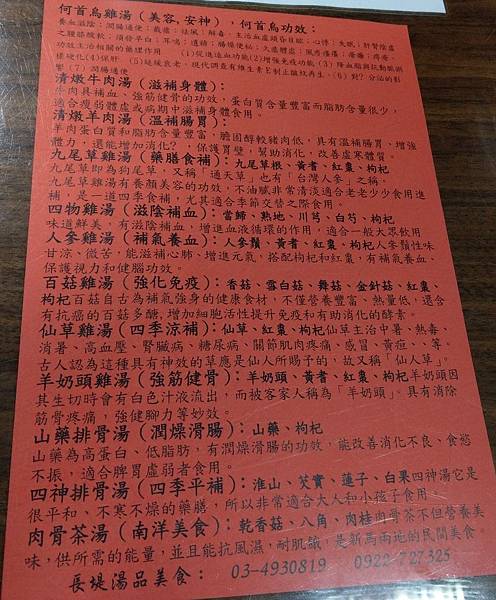 何首烏雞湯(美容,安神),何首烏功效:
養血滋陰;潤腸通便;截瘧;祛風;解毒。主治血虛頭昏目眩;心悸;失眠;肝腎陰虛
之腰膝酸軟;須發早白;耳鳴;遺精;腸燥便祕;久瘧體虛;風疹瘙癢;瘡癰;痔瘡。
功效主治相關的藥理作用 (1)促進造血功能(2)增強免疫功能(3)降血脂與抗動脈粥
樣硬化(4)保肝 (5)延緩衰老。現代調查有維生素E制止皺紋再生。(6)對?分泌的影
響(7)潤腸通便
清燉牛肉湯(滋補身體):
牛肉具補血、強筋健骨的功效,蛋白質含量豐富而脂肪含量很少,
適合瘦弱體虛或病期中滋補身體食用。
清燉羊肉湯(溫補腸胃):
羊肉蛋白質和脂肪含量豐富,膽固醇較豬肉低,具有溫補腸胃,增強
體力,還能增加?,保護胃壁,幫助消化,改善虛寒體質。
九尾草雞湯(藥膳食補):九尾草根、黃耆、紅棗、枸杞
九尾草即為狗尾草,又稱「通天草」也有「台灣人參」之稱,
九尾草雞湯有養顏美容的功效,不油膩非常清淡適合老老少少食用進
補,是一道四季食補,尤其適合季節交替之際食用。
四物雞湯(滋陰補血):當歸、熟地、川芎、白芍、枸杞
味道鮮美,有滋陰補血,增進血液循環的作用,適合一般大眾飲用
人參雞湯(補氣養血):人參鬚、黃耆、紅棗、枸杞人參鬚性味
甘涼、微苦,能滋補心肺、增進元氣,搭配枸杞和紅棗,有補氣養血、
保護視力和健腦功效。
百菇雞湯(強化免疫):香菇、雪白菇、舞菇、金針菇、紅棗、
枸杞百菇自古為補氣強身的健康食材,不僅營養豐富、熱量低,還含
有抗癌的百菇多醣,增加細胞活性提升免疫和有助消化的酵素。
仙草雞湯(四季涼補):仙草、紅棗、枸杞仙草主治中暑、熱毒、
消暑、高血壓、腎臟病、糖尿病、關節肌肉疼痛、感冒、黃疸、、等。
古人認為這種具有神效的草應是仙人所賜子的,故又稱「仙人草」。
羊奶頭雞湯(強筋健骨):羊奶頭、黃耆、紅棗、枸杞羊奶頭因
其生切時會有白色汁液流出,而被客家人稱為「羊奶頭」。具有消除
筋骨疼痛,強健腳力等妙效。
山藥排骨湯(潤燥滑腸):山藥、枸杞
山藥為高蛋白、低脂肪,有潤燥滑腸的功效,能改善消化不良、食慾
不振,適合脾胃虛弱者食用。
四神排骨湯(四季平補):淮山、芡實、蓮子、白果四神湯它是
很平和、不寒不燥的藥膳,所以非常適合大人和小孩子食用。
肉骨茶湯(南洋美食):乾香菇、八角、肉桂肉骨茶不但營養美
味,供所需的能量,並且能抗風濕,耐肌讖,是新馬兩地的民間美食
長堤湯品美食: 03-4930819 0922-727325